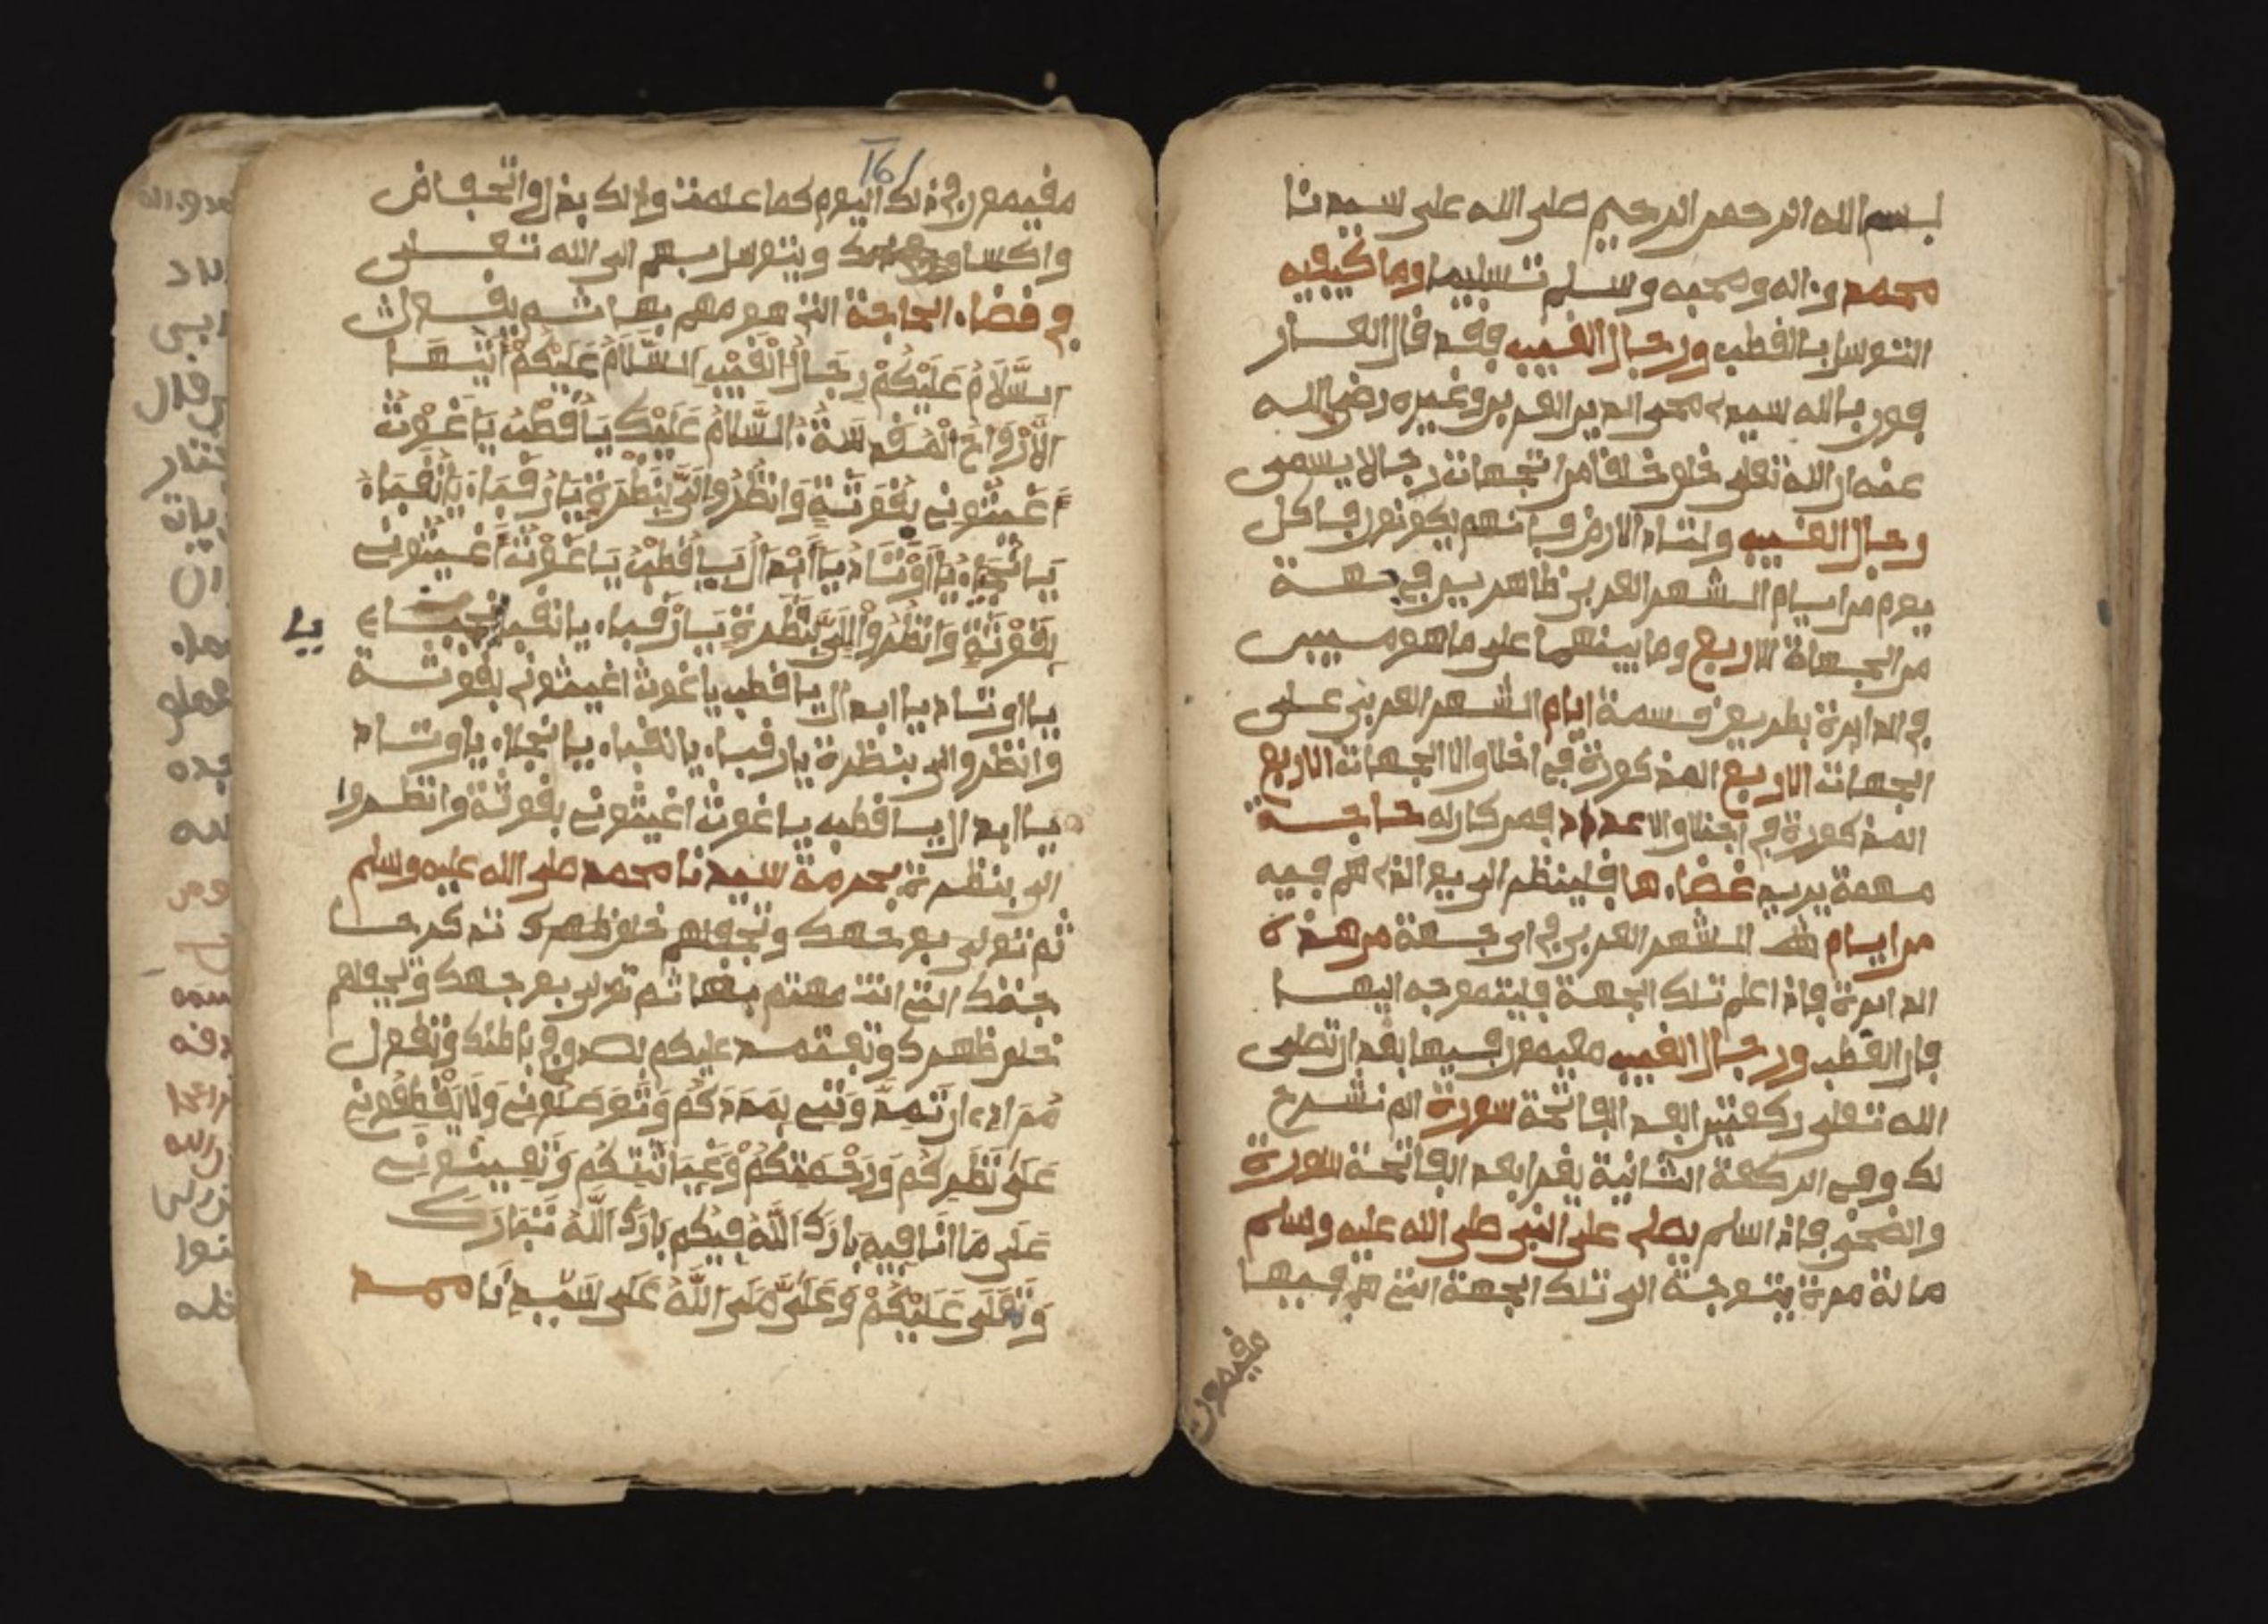 بسم الله الرحمن الرحيم صلى الله على سيدنا
محمد واله وصحبه وسلم تسليما وما كيفيه
التوسل بالقطب ورجال الغيب فقد قال العار
فون بالله سيدي محي الدين العربي وغيره رضي الله
عنه ان الله تعلى خلق خلقا من الجهات رجالا يسمى
رجال الغيب وانتاد الارض فانهم يكونون في كل
يوم من ايام الشهر العربي ظاهرين في جهة
من الجهاة الاربع وما بينهما على ما هو مبين
في الدايرة بطريق قسمة ايام الشهر العربي على
الجهات الاربع المذكورة في اخلاو الا الجهات الاربع
المذكورة في اجلاو الا عداد فمن كان له حاجة
مهمة يريد غضاءها فلينظر الى يوم الذي هم فيه
من ايام الشهر العربي في اى جهة من هذه
الدايرة فاذا علم تلك الجهة فليتوجه اليها
فان القطب ورجال الغيب مقيمون فيها بعد ان تصلى
الله تعلى ركعتين بعد الفاتحة سورة الم نشرح
لك وفي الركعة الثانية يقرا بعد الفاتحة سورة
والضحى فاذا سلم يصلى على النبي صلى الله عليه وسلم
مائة مرة يتوجه الى تلك الجهة التي هم فيها
مقيمون
161
مقيمون في ذلك اليوم كما علمت وذلك بذل وانخفاض
وانكسار ويتوسل بهم الى الله تعلى
في قضاء الحاجة التي هو مهم بها ثم يقول
السَّلَامُ عَلَيْكُمْ رِجَالُ الْغَيْبِ السَّلَامُ عَلَيْكُمْ أَيَّتُهَا
الْأَرْوَاحُ الْمُقَدَّسَةُ السَّلَامُ عَلَيْكَ يَا قُطْبُ يَا غَوْثُ
أَغِيثُونِي بِغَوْثَةٍ وَانْظُرُوا إِلَيَّ بِنَظْرَةٍ يَا رُقَبَاءُ يَا نُقَبَاءُ
يَا نُجَبَاءُ يَا أَوْتَادُ يَا أَبْدَالُ يَا قُطْبُ يَا غَوْثُ أَغِيثُونِي
بِغَوْثَةٍ وَانْظُرُوا إِلَيَّ بِنَظْرَةٍ يَا رُقَبَاء يا نقباء نجباء
يا
يا اوتاد يا ابدال يا قطب يا غوث اغيثوني بغوثة
وانظروا الى بنظرة يا رقباء يا نقباء يا نجباء يا وتاد
يا ابدال يا قطب يا غوث اغيثوني بغوثة وانظروا
الى بنظرة بحرمة سيدنا محمد صلى الله عليه وسلم
ثم تولى بوجهك وتجعلهم خلف ظهرك تذكر حا
جتك التي انت مهتم بها ثم تولى بوجهك وتجعلهم
خلف ظهرك وتعتمد عليكم بصدق في باطنك وتقول
مُرَادِي ان تُمِدُّونِي بِمَدَدِكُمْ وَتَوَصَلُونِي وَلَا تَقْطَعُونِي
عَلَى نَظَرِكُمْ وَرَحْمَتِكُمْ وَغِيَاثَتِكُمْ وَتُعِينُونِي
عَلَى مَا أَنَا فِيهِ بَارَكَ اللَّهُ فِيكُمْ بَارَكَ اللَّهُ تَبَارَكَ
وَتَعَلَى عَلَيْكُمْ وَعَلَيَّ صَلَى اللَّهُ عَلَى سَيِّدِنَا محمد